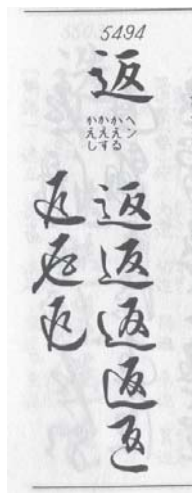 5494
返
ヘン
かえる
かえす
かえし
返
返
返
返
返
返
返
返